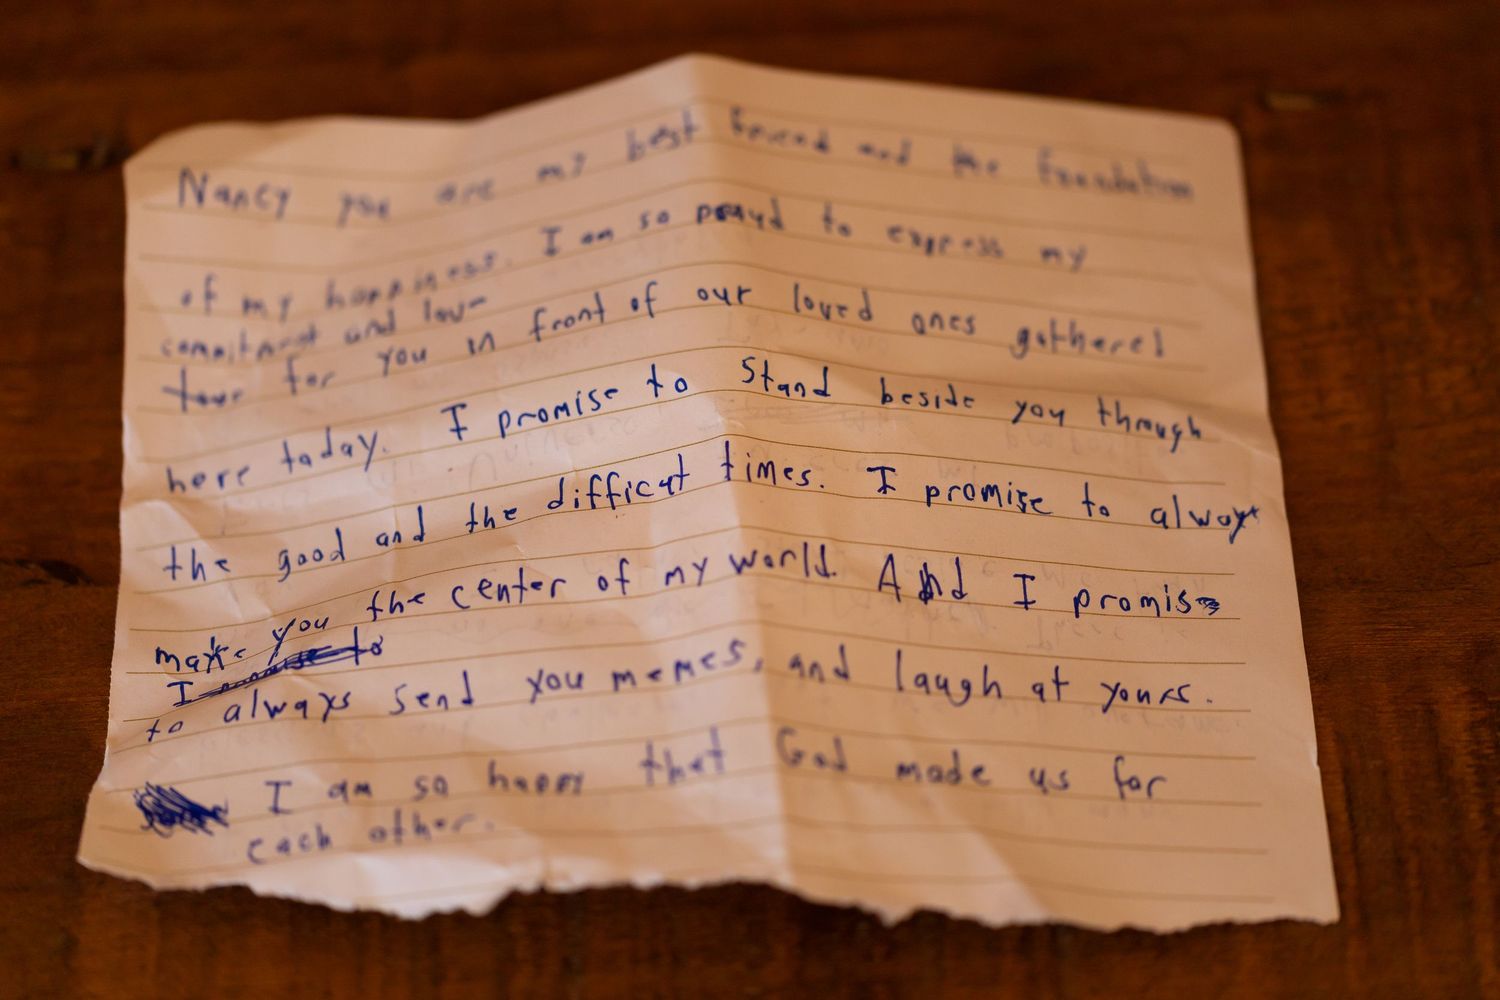 Nancy you are my best friend and the foundation
of my happiness. I am so proud to express my
commitment and love
for you in front of our loved ones gathered
here today. I promise to stand beside you through
the good and the difficut times. I promise to always
make you the center of my world. And I promise
I to
to always send you memes, and laugh at yours.
I am so happy that God made us for
each other.